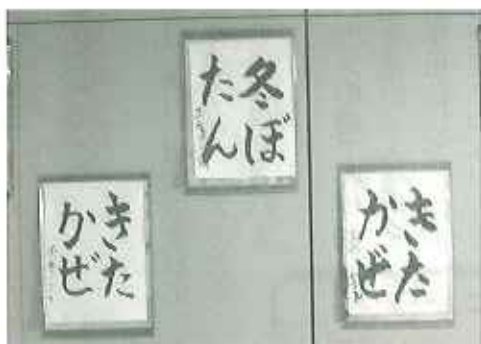 冬ぼ
たん
きた
かぜ
きた
かぜ